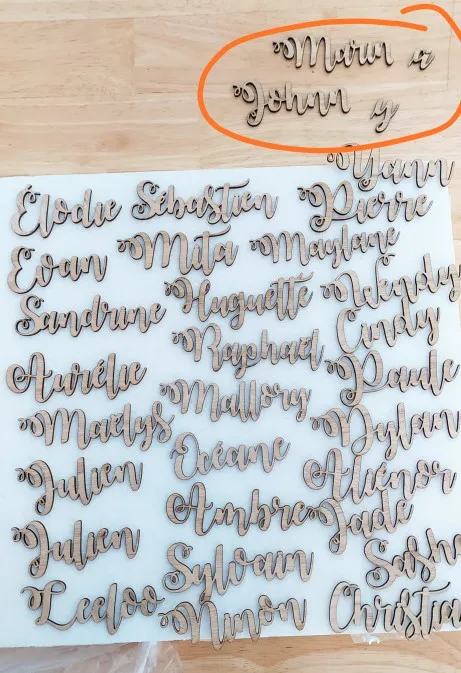 Marin a
Johnn y
Yann
Élodie Sébastien Pierre
Evan Mita Maylane
Sandrine Huguette Wendy
Raphaël Cindy
Aurélie Mallory Paule
Maëlys Océane Dylan
Julien Aliénor
Ambre Jade
Julien Sylvain Sasha
Leeloo Ninon Christin